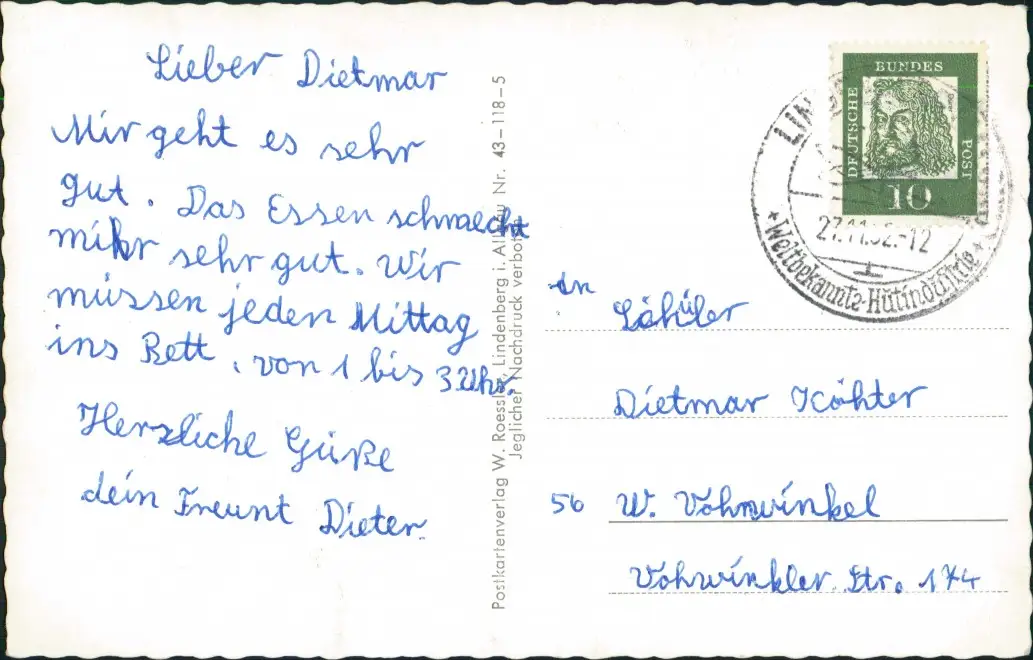 Lieber Dietmar
Mir geht es sehr
gut. Das Essen schmaecht
mihr sehr gut. Wir
müssen jeden Mittag
ins Bett, von 1 bis 3 Uhr.
Herzliche Güße
dein Freunt Dieter.
Postkartenverlag W. Roessler, Lindenberg i. Allgäu Nr. 43-118-5
Jeglicher Nachdruck verboten
DEUTSCHE BUNDES POST
10
27.11.62-12
*Weltbekannte Hutindustrie*
An
Dietmar Köhter
56 W. Vohwinkel
Vohwinkler Str. 174